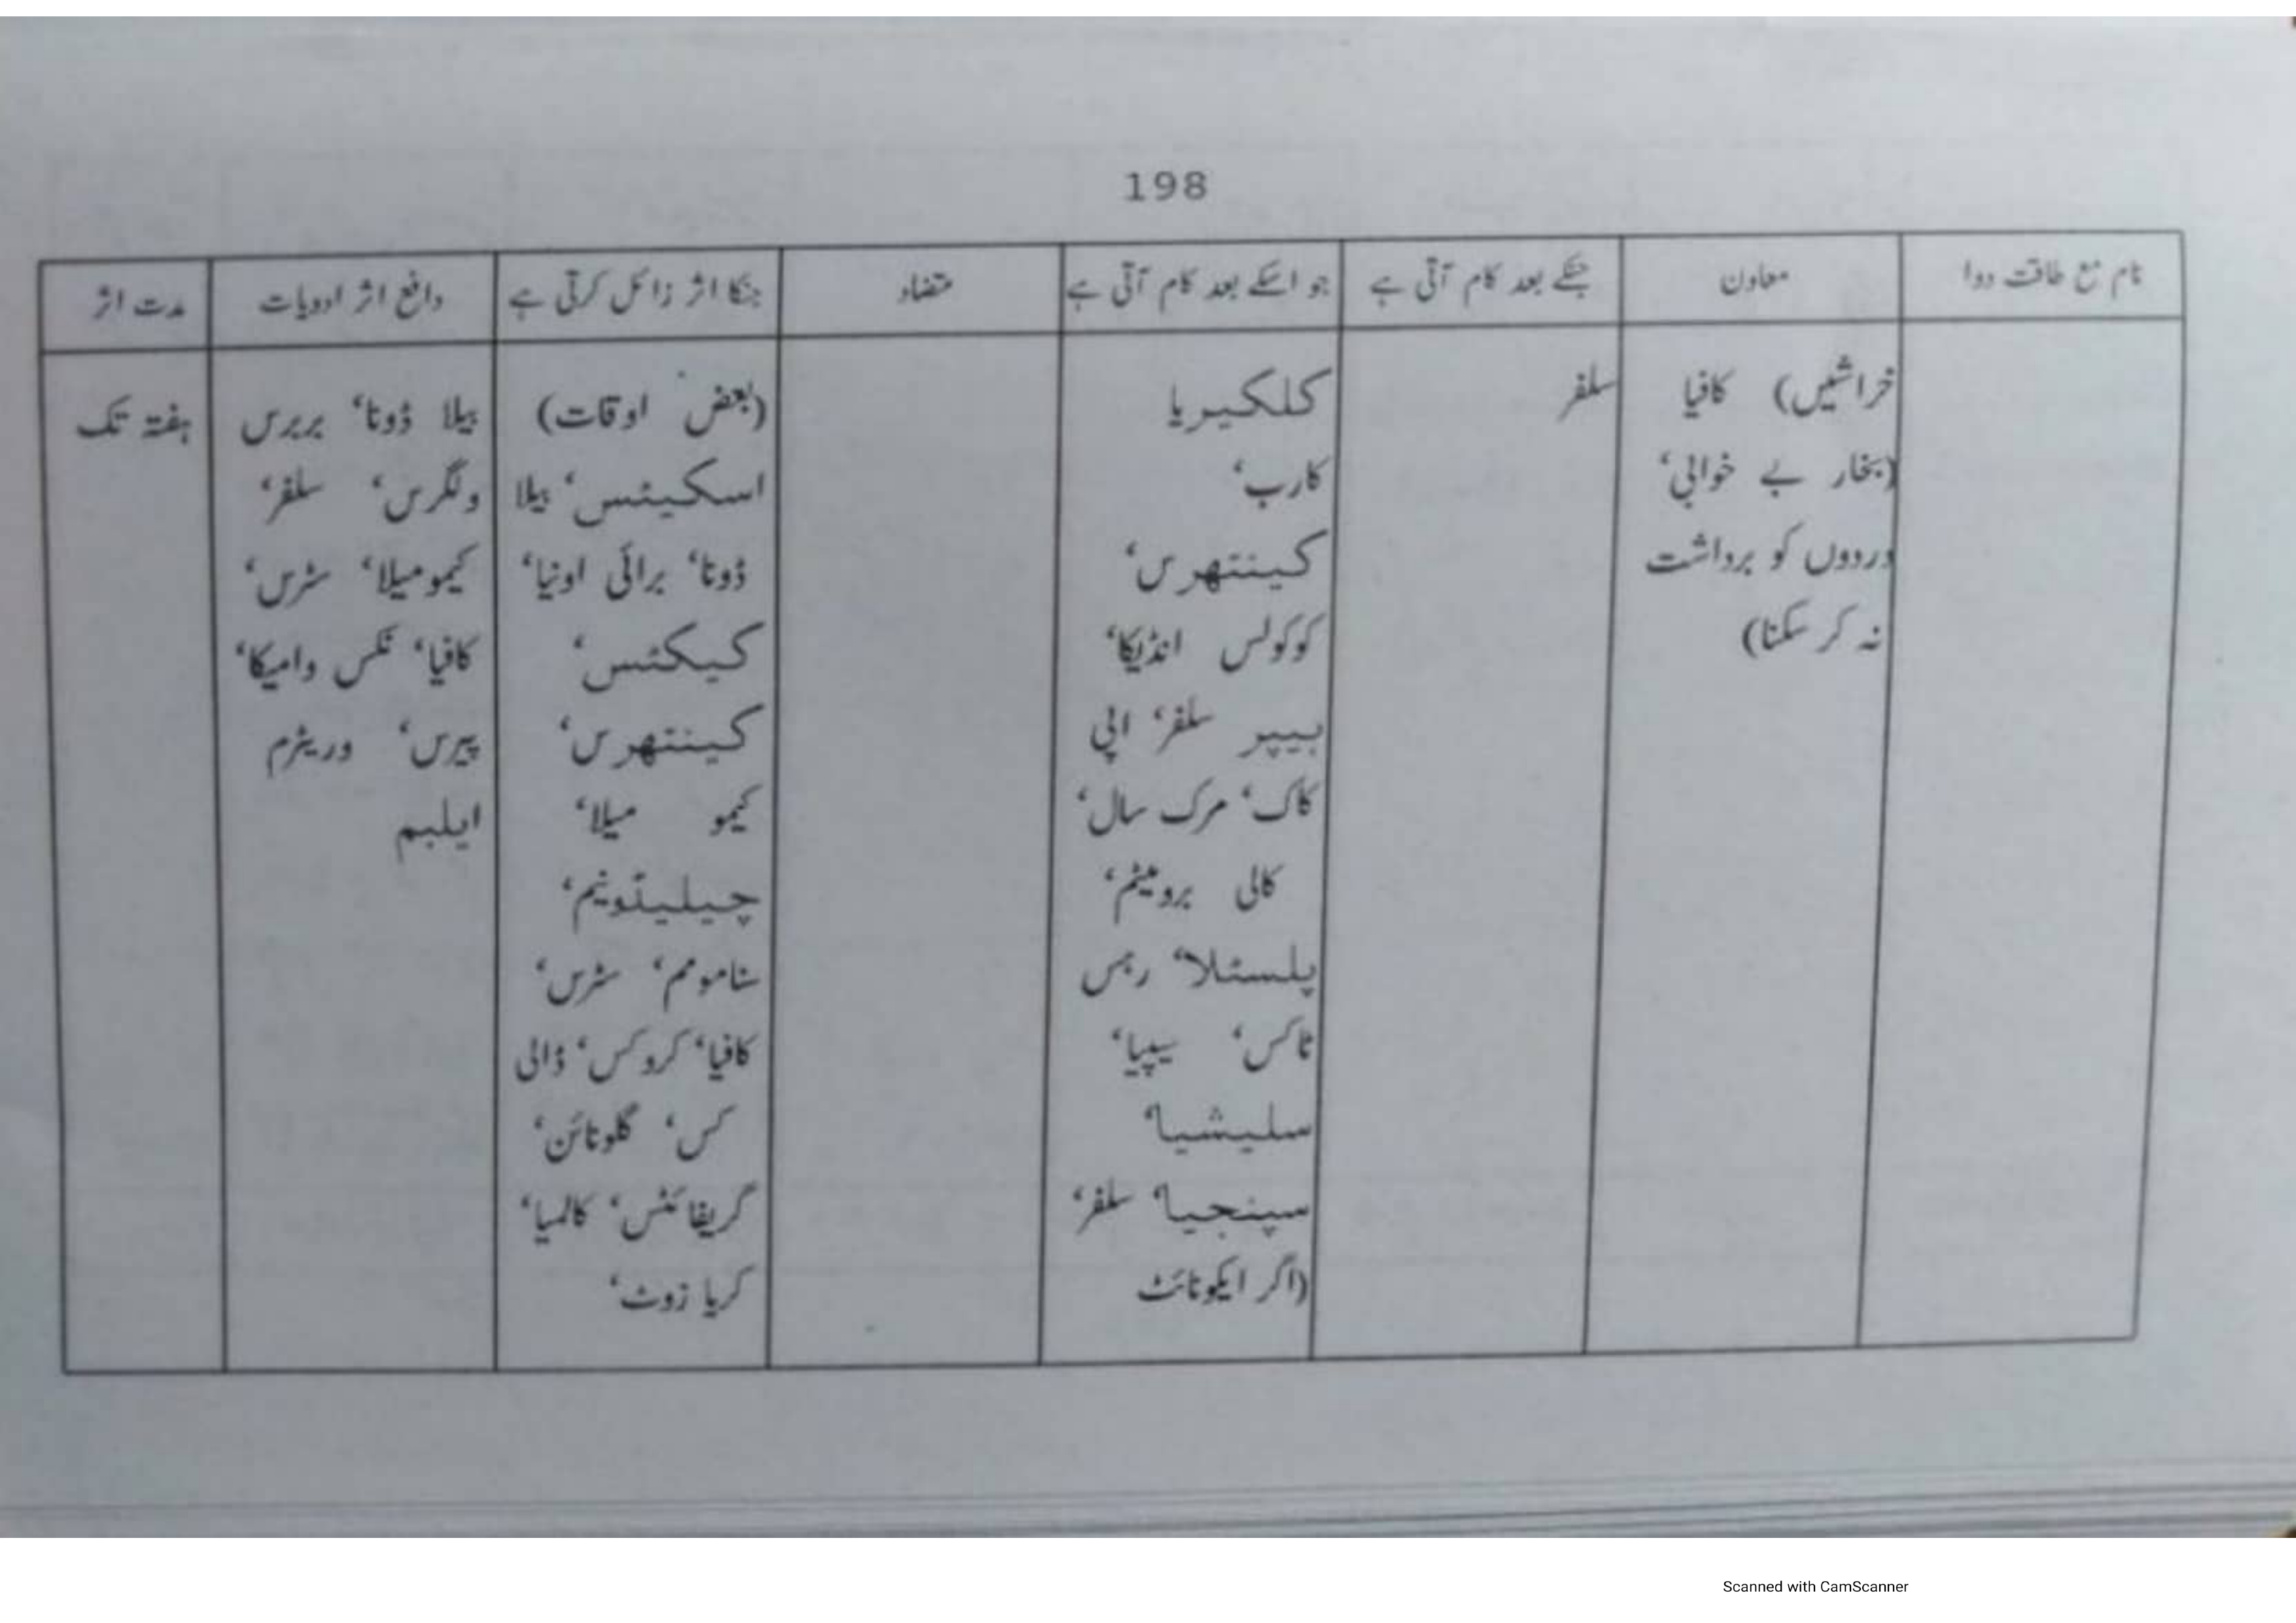 198
نام مع طاقت دوا
معاون
جنکے بعد کام آتی ہے
جو اسکے بعد کام آتی ہے
متضاد
جنکا اثر زائل کرتی ہے
دافع اثر ادویات
مدت اثر
خراشیں) کافیا
(بخار بے خوابی‘
دردوں کو برداشت
نہ کر سکنا)
سلفر
کلکیریا
کارب‘
کینتھرس‘
کوکولس انڈیکا‘
ہیپر سلفر‘ اپی
کاک‘ مرک سال‘
کالی برومیٹم‘
پلسٹلا‘ رہس
ٹاکس‘ سیپیا‘
سلیشیا‘
سپنجیا‘ سلفر‘
(اگر ایکونائٹ
(بعض اوقات)
اسکیٹس‘ بیلا
ڈونا‘ برائی اونیا‘
کیکٹس‘
کینتھرس‘
کیمو میلا‘
چیلیڈونیم‘
سنامومم‘ سٹرس‘
کافیا‘ کروکس‘ ڈالی
کس‘ گلونائن‘
گریفائٹس‘ کالمیا‘
کریا زوٹ‘
بیلا ڈونا‘ بربرس
ولگرس‘ سلفر‘
کیمومیلا‘ سٹرس‘
کافیا‘ نکس وامیکا‘
پیرس‘ وریٹرم
ایلبم
ہفتہ تک
Scanned with CamScanner